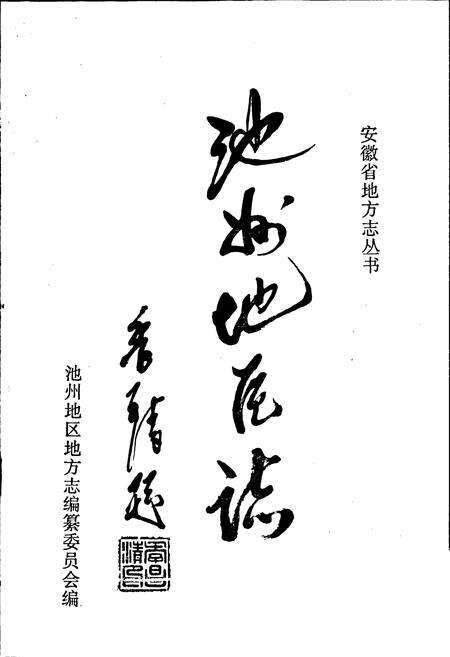 安徽省地方志丛书
池州地区誌
池州地区地方志编纂委员会编